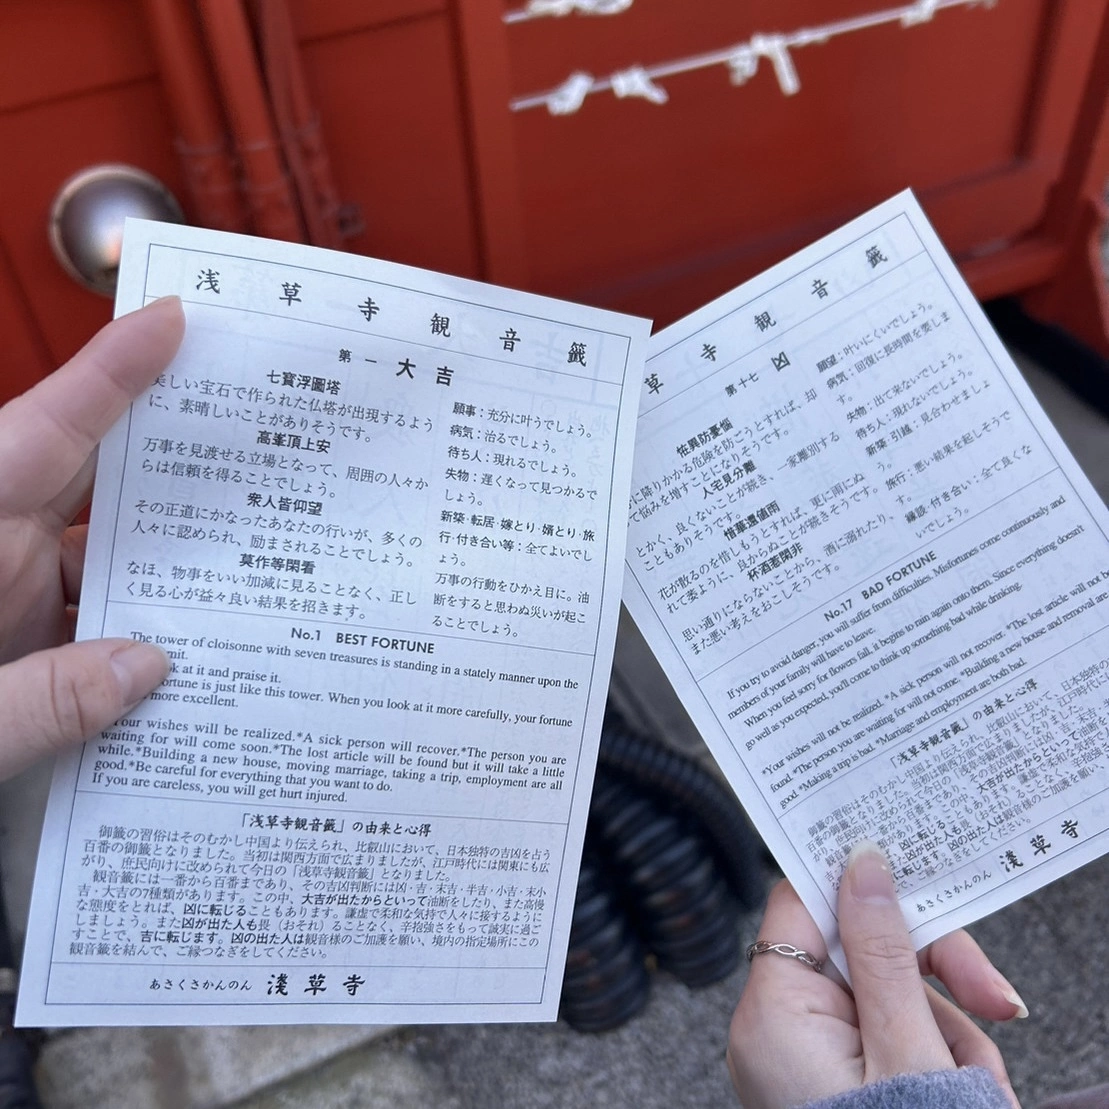 浅草寺観音籤
第一 大吉
七寶浮圖塔
美しい宝石で作られた仏塔が出現するよう
に、素晴しいことがありそうです。
高峯頂上安
万事を見渡せる立場となって、周囲の人々か
らは信頼を得ることでしょう。
衆人皆仰望
その正道にかなったあなたの行いが、多くの
人々に認められ、励まされることでしょう。
莫作等閑看
なほ、物事をいい加減に見ることなく、正し
く見る心が益々良い結果を招きます。
願事：充分に叶うでしょう。
病気：治るでしょう。
待ち人：現れるでしょう。
失物：遅くなって見つかるで
しょう。
新築・転居・嫁とり・婿とり・旅
行・付き合い等：全てよいでし
ょう。
万事の行動をひかえ目に。油
断をすると思わぬ災いが起こ
ることでしょう。
No.1 BEST FORTUNE
The tower of cloisonne with seven treasures is standing in a stately manner upon the
mit.
k at it and praise it.
ortune is just like this tower. When you look at it more carefully, your fortune
more excellent.
Your wishes will be realized.*A sick person will recover.*The person you are
waiting for will come soon.*The lost article will be found but it will take a little
while.*Building a new house, moving marriage, taking a trip, employment are all
good.*Be careful for everything that you want to do.
If you are careless, you will get hurt injured.
「浅草寺観音籤」の由来と心得
御籤の習俗はそのむかし中国より伝えられ、比叡山において、日本独特の吉凶を占う
百番の御籤となりました。当初は関西方面で広まりましたが、江戸時代には関東にも広
がり、庶民向けに改められて今日の「浅草寺観音籤」となりました。
観音籤には一番から百番まであり、その吉凶判断には凶・吉・末吉・半吉・小吉・末小
吉・大吉の7種類があります。この中、大吉が出たからといって油断をしたり、また高慢
な態度をとれば、凶に転じることもあります。謙虚で柔和な気持で人々に接するように
しましょう。また凶が出た人も畏（おそれ）ることなく、辛抱強さをもって誠実に過ご
すことで、吉に転じます。凶の出た人は観音様のご加護を願い、境内の指定場所にこの
観音籤を結んで、ご縁つなぎをしてください。
あさくさかんのん 淺草寺
草寺観音籤
第十七 凶
怪異防憂惱
に降りかかる危険を防ごうとすれば、却
て悩みを増すことになりそうです。
人宅見分離
とかく、良くないことが続き、一家離別する
こともありそうです。
惜華還値雨
花が散るのを惜しもうとすれば、更に雨にぬ
れて萎ように、良からぬことが続きそうです。
杯酒惹閑非
思い通りにならないことから、酒に溺れたり、
また悪い考えをおこしそうです。
願望：叶いにくいでしょう。
病気：回復に長時間を要しま
す。
失物：出て来ないでしょう。
待ち人：現れないでしょう。
新築・引越：見合わせましょ
う。
旅行：悪い結果を起しそうで
す。
縁談・付き合い：全て良くな
いでしょう。
No.17 BAD FORTUNE
If you try to avoid danger, you will suffer from difficulties. Misfortunes come continuously and
members of your family will have to leave.
When you feel sorry for flowers fall, it begins to rain again onto them. Since everything doesn't
go well as you expected, you'll come to think up something bad while drinking.
*Your wishes will not be realized. *A sick person will not recover. *The lost article will not be
found. *The person you are waiting for will not come. *Building a new house and removal are
good. *Making a trip is bad. *Marriage and employment are both bad.
「浅草寺観音籤」の由来と心得
御籤の習俗はそのむかし中国より伝えられ、比叡山において、日本独特の
百番の御籤となりました。当初は関西方面で広まりましたが、江戸時代に
あさくさかんのん 淺草寺